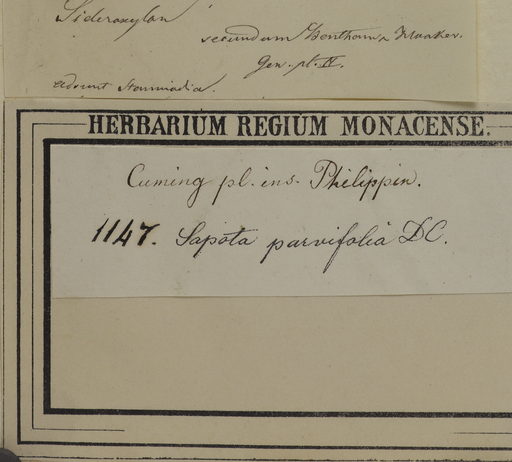 Sideroxylon
secundum Bentham & Hooker.
Gen. pl. II.
adsunt staminodia.
HERBARIUM REGIUM MONACENSE.
Cuming pl. ins. Philippin.
1147. Sapota parvifolia DC.